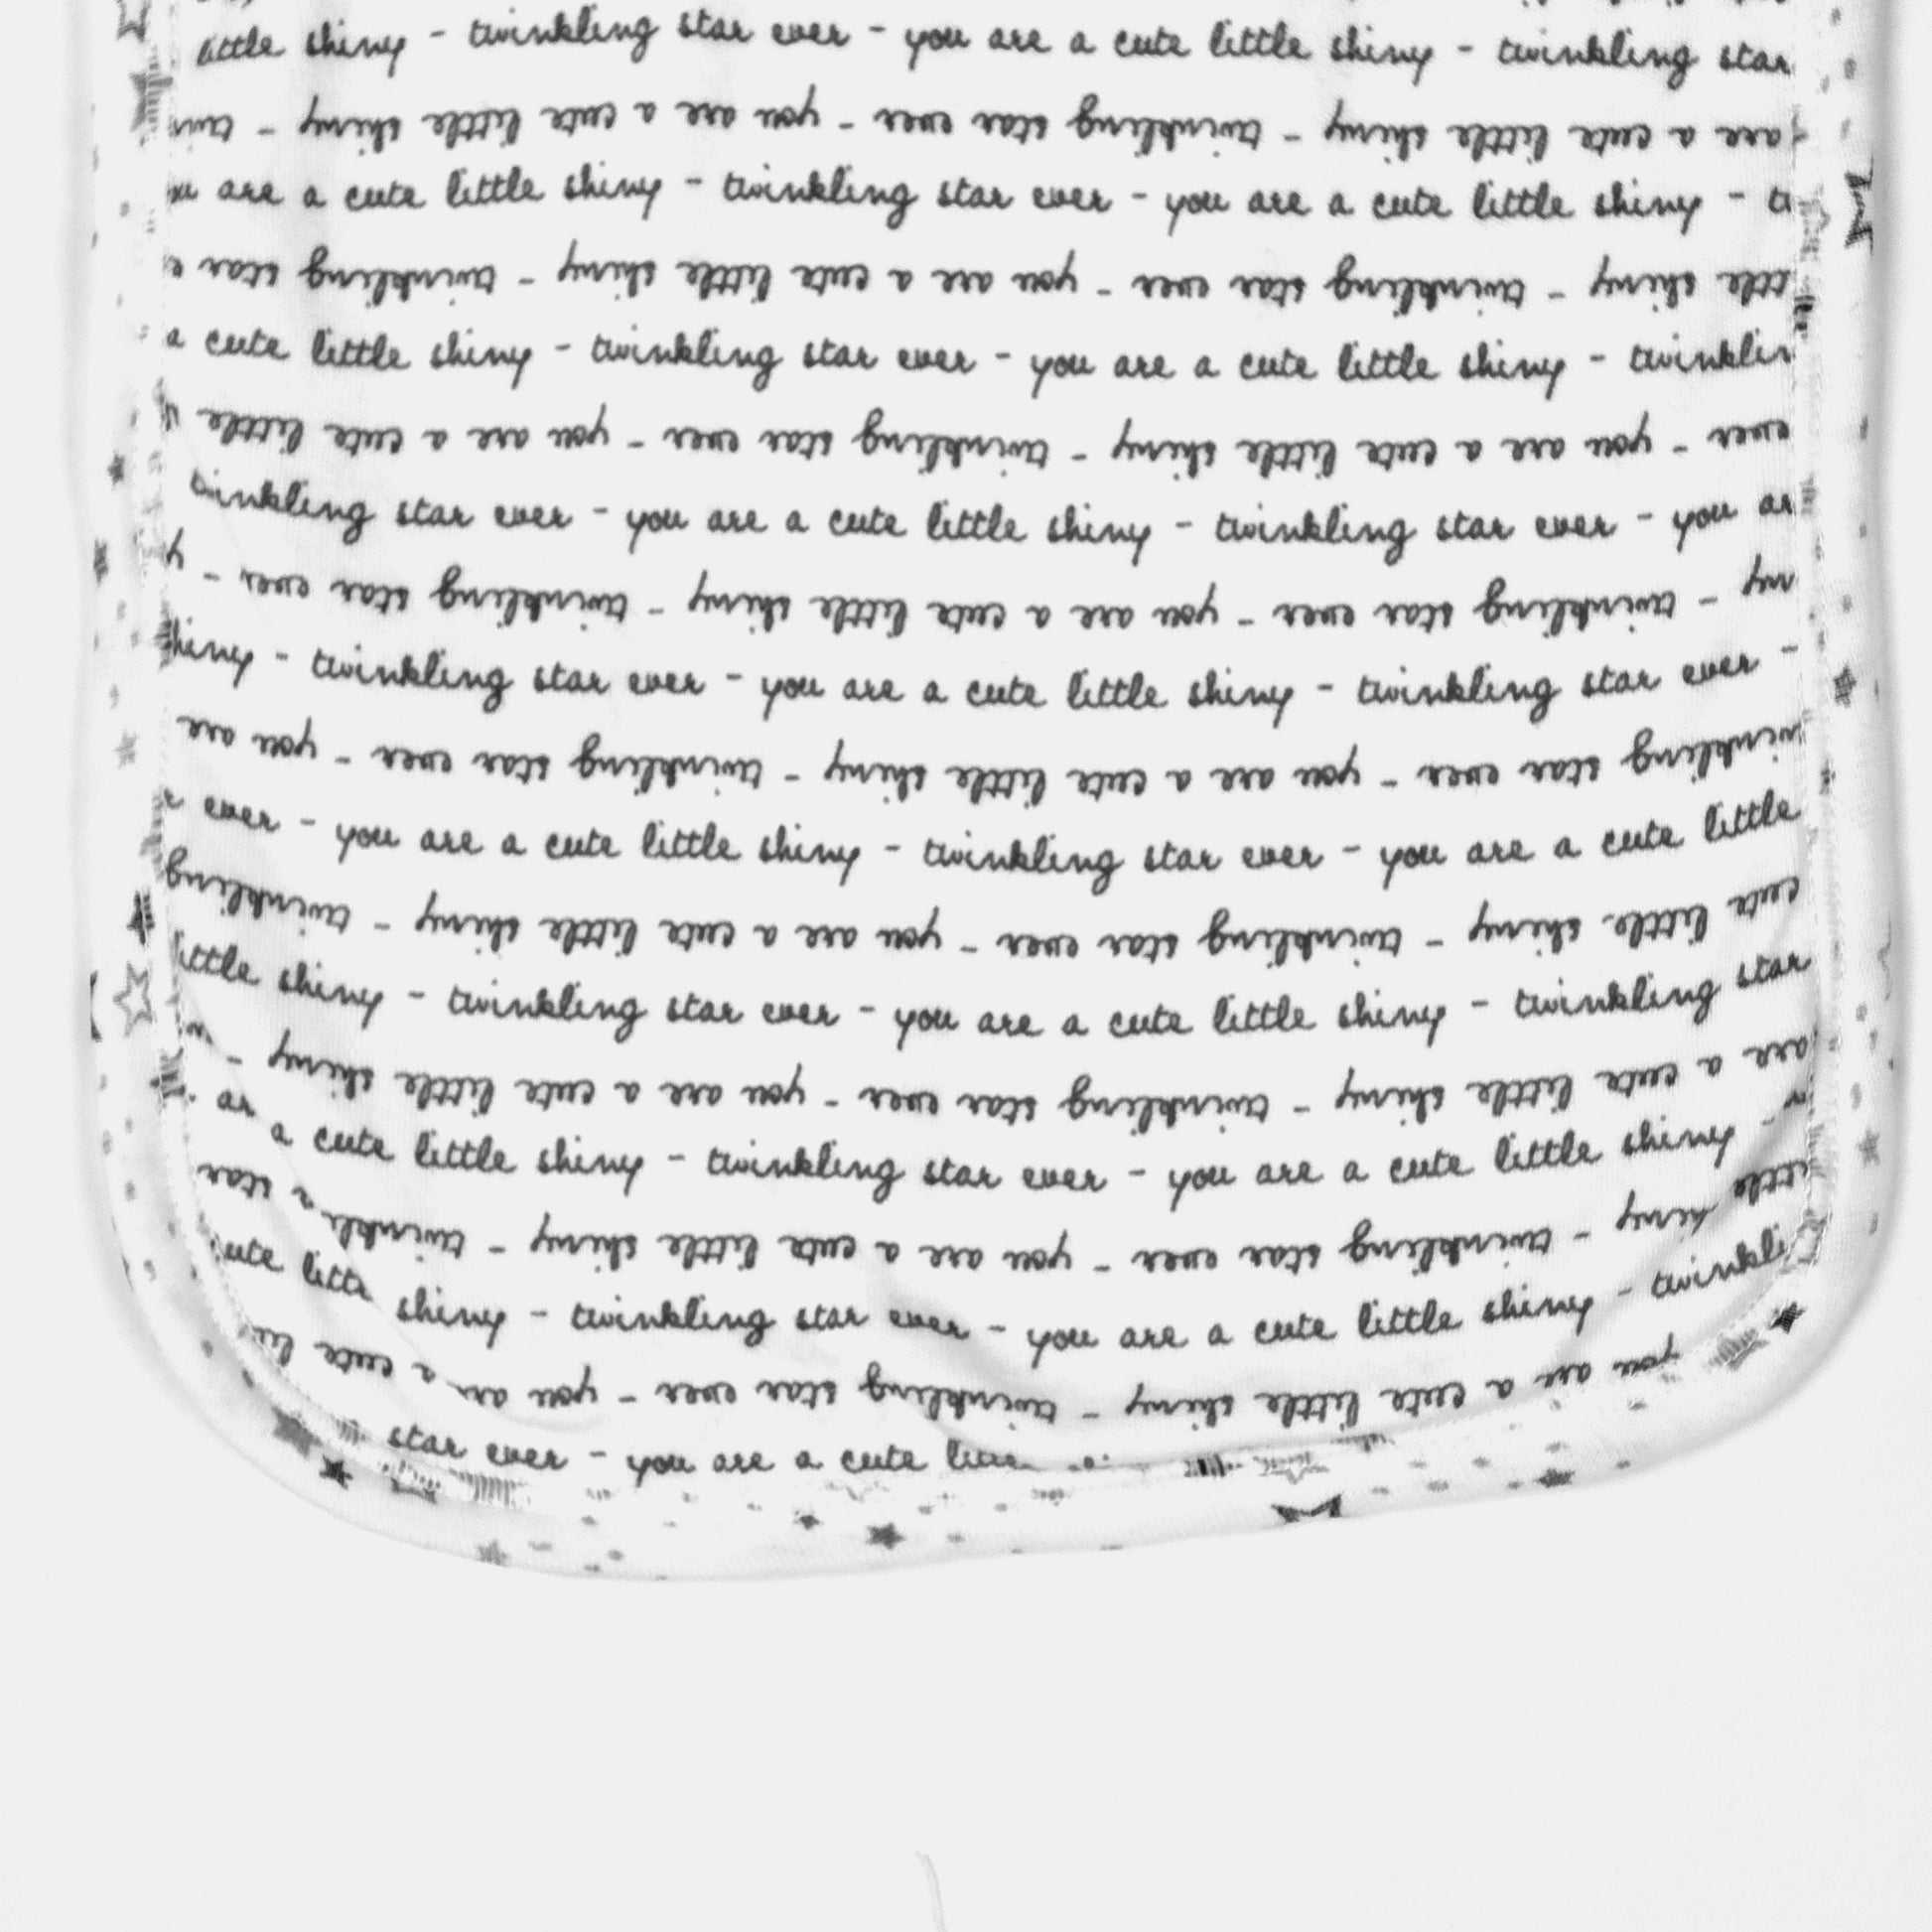 little shiny - twinkling star ever - you are a cute little shiny - twinkling star
are a cute little shiny - twinkling star ever - you are a cute little shiny - twin
u are a cute little shiny - twinkling star ever - you are a cute little shiny - t
ttle shiny - twinkling star ever - you are a cute little shiny - twinkling star e
a cute little shiny - twinkling star ever - you are a cute little shiny - twinklin
ever - you are a cute little shiny - twinkling star ever - you are a cute little
twinkling star ever - you are a cute little shiny - twinkling star ever - you ar
ny - twinkling star ever - you are a cute little shiny - twinkling star ever - y
shiny - twinkling star ever - you are a cute little shiny - twinkling star ever -
winkling star ever - you are a cute little shiny - twinkling star ever - you are
r ever - you are a cute little shiny - twinkling star ever - you are a cute little
cute little shiny - twinkling star ever - you are a cute little shiny - twinkling
little shiny - twinkling star ever - you are a cute little shiny - twinkling star
are a cute little shiny - twinkling star ever - you are a cute little shiny -
ar a cute little shiny - twinkling star ever - you are a cute little shiny -
ittle hiny - twinkling star ever - you are a cute little shiny - twinklin star
cute littl shiny - twinkling star ever - you are a cute little shiny - twinkli
you are a cute little shiny - twinkling star ever - you ar a cute li
star ever - you are a cute little